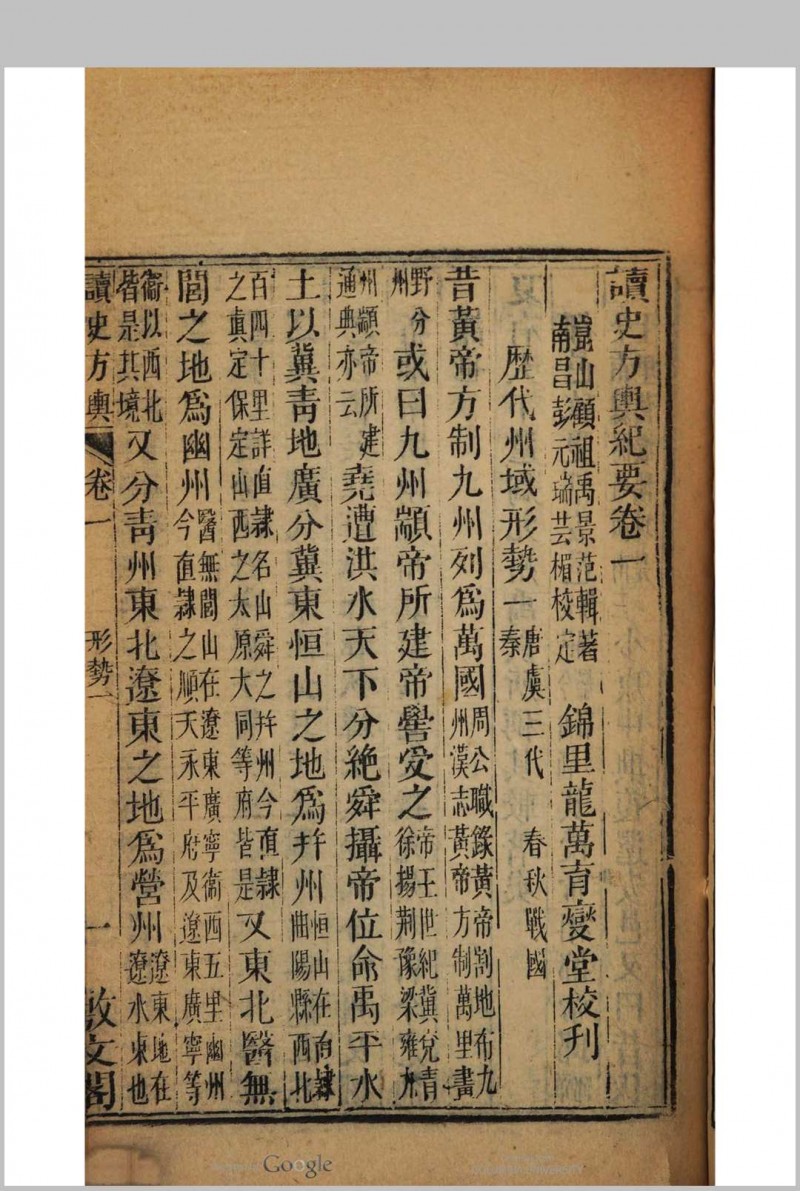 讀史方輿紀要卷一
崑山顧祖禹景范輯著
南昌彭元瑞芸楣校定
錦里龍萬育燮堂校刋
歷代州域形勢一
唐虞三代 春秋戰國
秦
昔黃帝方制九州列爲萬國
周公職錄黃帝割地布九
州漢志黃帝方制萬里畫
野分
州
或曰九州顓帝所建帝嚳受之
帝王世紀冀兗青
徐揚荆豫梁雍九
州顓帝所建
通典亦云
堯遭洪水天下分絶舜攝帝位命禹平水
土以冀靑地廣分冀東恒山之地爲幷州
恒山在直隸
曲陽縣西北
百四十里詳直隸名山舜之幷州今直隸
之眞定保定山西之太原大同等府皆是
又東北醫無
閭之地爲幽州
醫無閭山在遼東廣寧衞西五里幽州
今直隸之順天永平府及遼東廣寧等
衞以西北
皆是其境
又分靑州東北遼東之地爲營州
遼東地在
遼水東也
讀史方輿 卷一 形勢一 一 敷文閣
Google